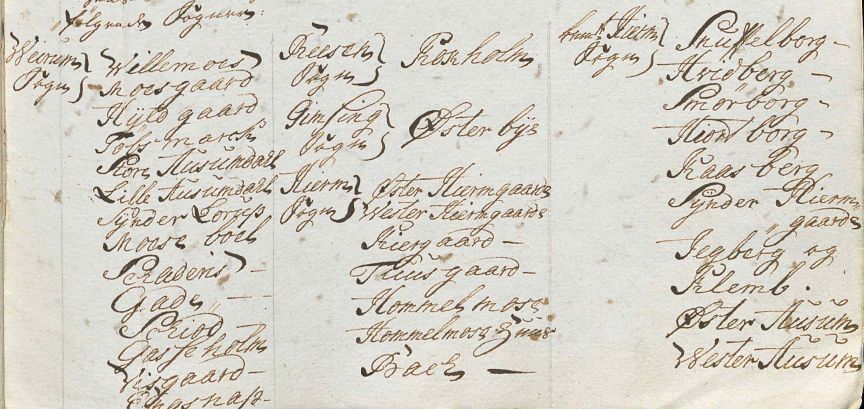 følgende Sogner:
Weirum Sogn
Willemoes
Moesgaard
Hyldgaard
Tofsmarch
Store Ausumdahl
Lille Ausumdahl
Synder Lorup
Moeseboel
Skaderis
Gade
Skiod
Gasseholm
Visgaard
Resen Sogn
Ronholm
Gimsing Sogn
Østerbye
Hierm Sogn
Øster Hiermgaard
Wester Hiermgaard
Kiergaard
Tuusgaard
Hommelmose
Hommelmose Huus
Bæch
Hierm Sogn
Snuffelborg
Hvidberg
Smørborg
Hiortborg
Raasberg
Synder Hierm
gaard
Jegberg og
Klemb.
Øster Ausum
Wester Ausum